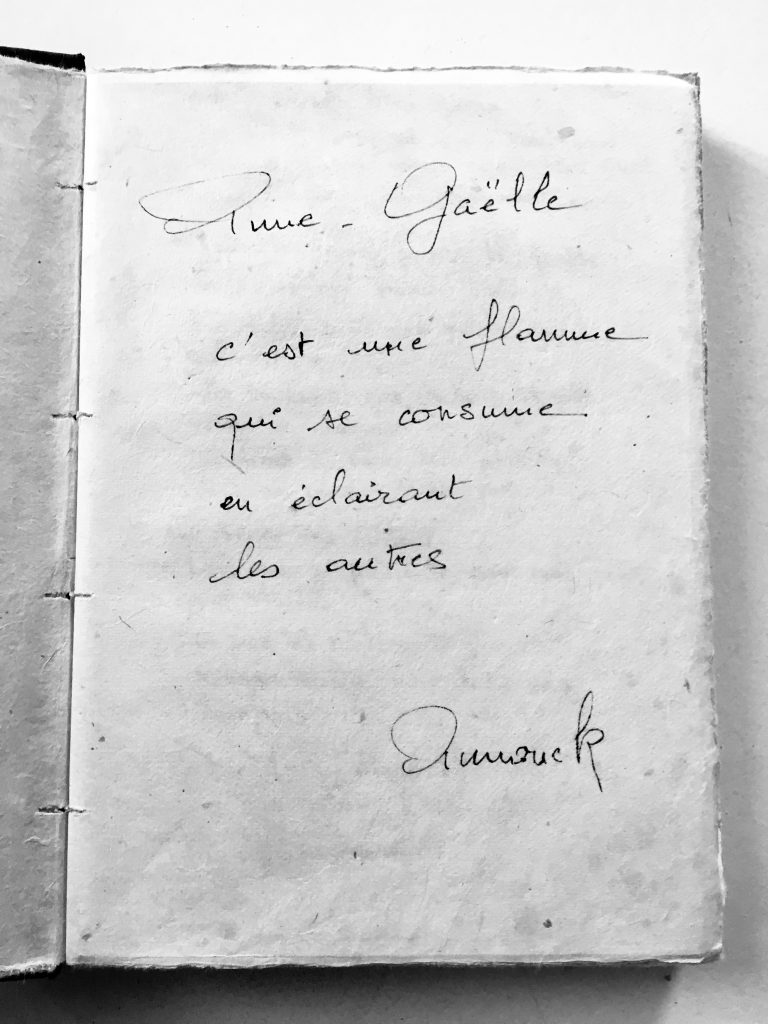 Anne-Gaëlle
c'est une flamme
qui se consume
en éclairant
les autres
Annouck